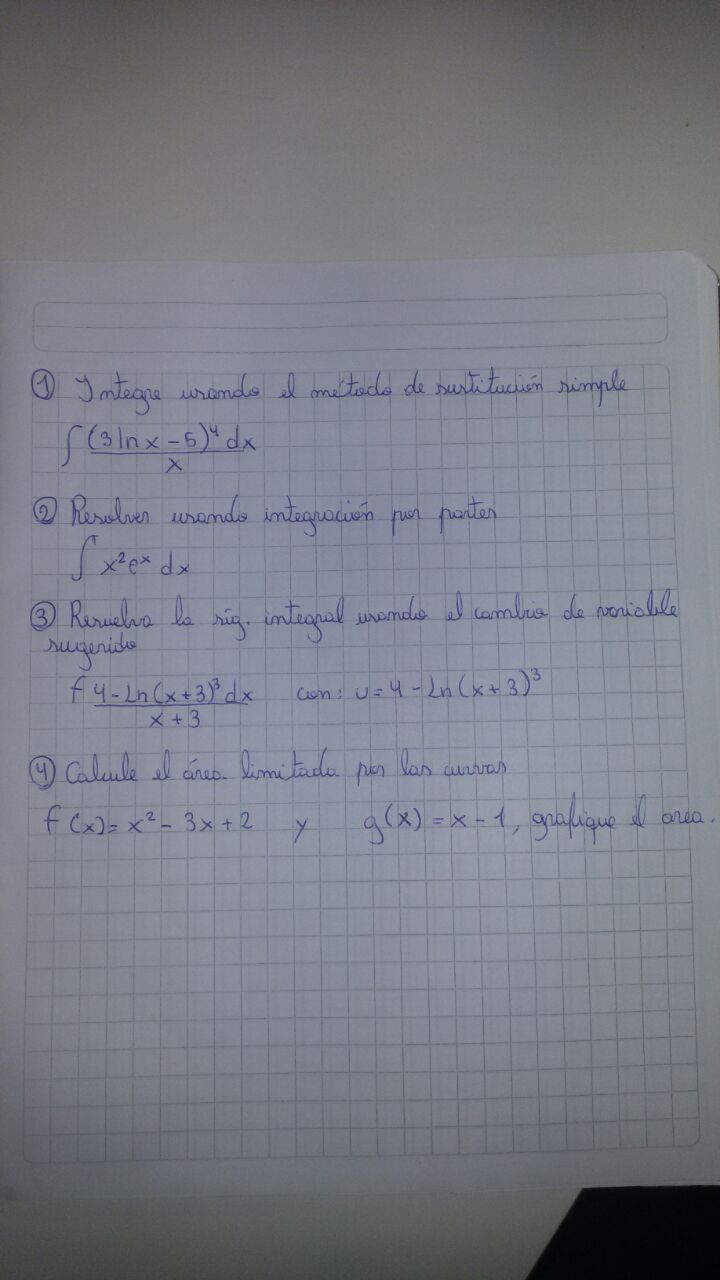 ① Integre usando el método de sustitución simple
∫ (3 ln x - 5)⁴ dx
x
② Resolver usando integración por partes
∫ x² eˣ dx
③ Resuelva la sig. integral usando el cambio de variable
sugerido
∫ 4 - Ln (x + 3)³ dx con: u = 4 - Ln (x + 3)³
x + 3
④ Calcule el área limitada por las curvas
f (x) = x² - 3x + 2 y g(x) = x - 1, grafique el area.